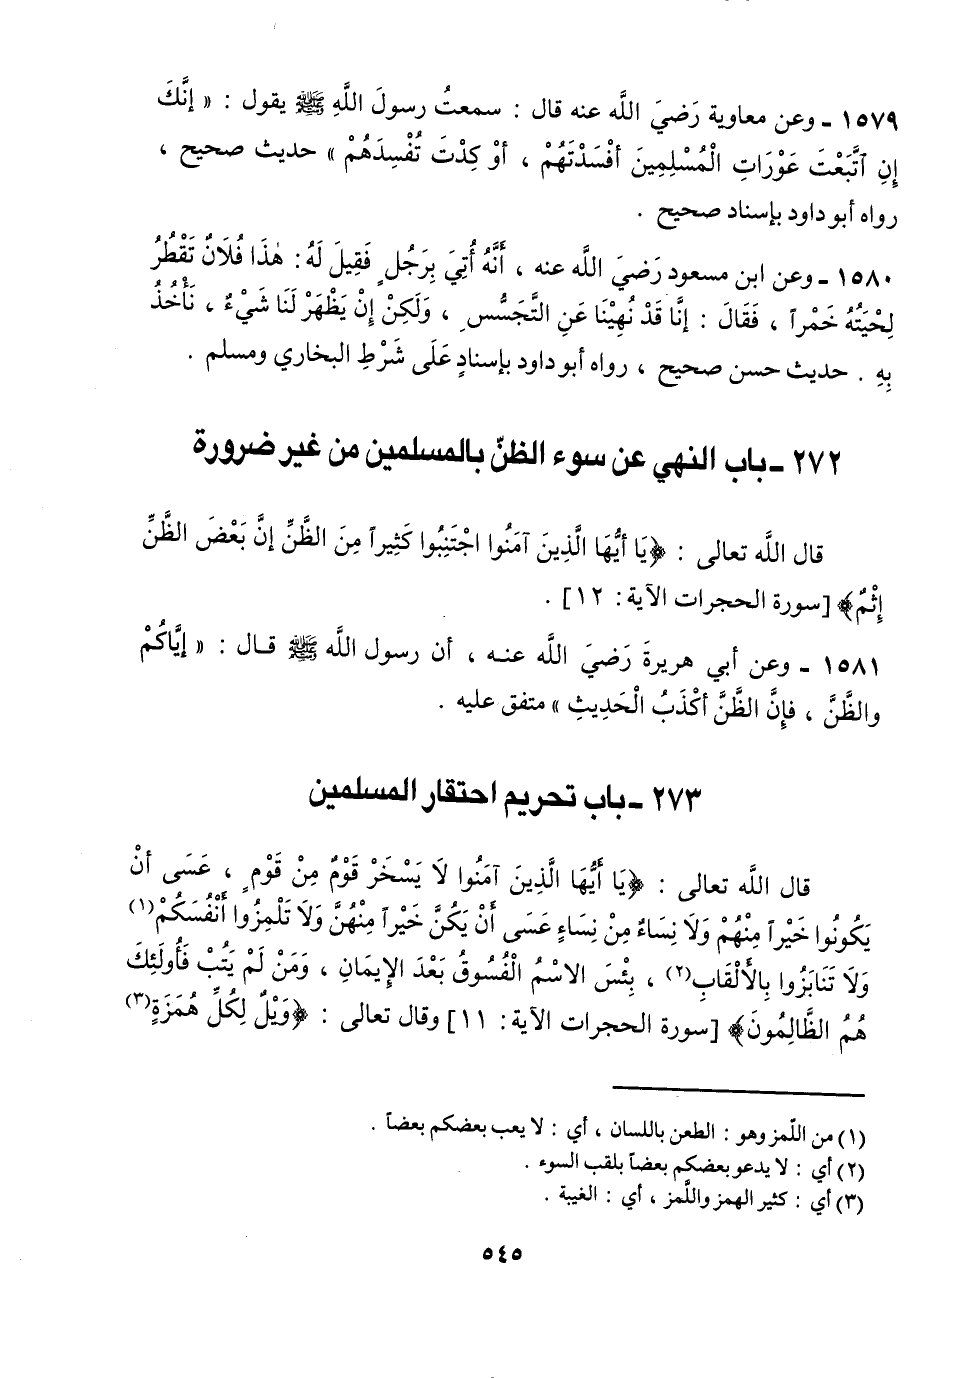 ١٥٧٩ ـ وعن معاوية رَضيَ اللَّه عنه قال : سمعتُ رسولَ اللَّهِ ﷺ يقول : « إنَّكَ
إنِ ٱتَّبَعْتَ عَوْرَاتِ الْمُسْلِمِينَ أفْسَدْتَهُمْ ، أوْ كِدْتَ تُفْسِدَهُمْ » حديث صحيح ،
رواه أبو داود بإسناد صحيح .
١٥٨٠ ـ وعن ابن مسعود رَضيَ اللَّه عنه ، أَنَّهُ أُتِيَ بِرَجُلٍ فَقِيلَ لَهُ: هٰذَا فُلَانٌ تَقْطُرُ
لِحْيَتُهُ خَمْراً ، فَقَالَ : إنَّا قَدْ نُهِيْنَا عَنِ التَّجَسُّسِ ، وَلَكِنْ إِنْ يَظْهَرْ لَنَا شَيْءٌ ، نَأْخُذُ
بِهِ . حديث حسن صحيح ، رواه أبو داود بإسنادٍ عَلَى شَرْطِ البخاري ومسلم .
٢٧٢ ـ باب النهي عن سوء الظنّ بالمسلمين من غير ضرورة
قال اللَّه تعالى : ﴿يَا أَيُّهَا الَّذِينَ آمَنُوا اجْتَنِبُوا كَثِيراً مِنَ الظَّنِّ إنَّ بَعْضَ الظَّنِّ
إِثْمٌ﴾ [سورة الحجرات الآية: ١٢] .
١٥٨١ ـ وعن أبي هريرةَ رَضيَ اللَّه عنـه ، أن رسول اللَّه ﷺ قـال : « إيَّاكُمْ
والظَّنَّ ، فإنَّ الظَّنَّ أكْذَبُ الْحَدِيثِ » متفق عليه .
٢٧٣ ـ باب تحريم احتقار المسلمين
قال اللَّه تعالى : ﴿يَا أَيُّهَا الَّذِينَ آمَنُوا لَا يَسْخَرْ قَوْمٌ مِنْ قَوْمٍ ، عَسَى أنْ
يَكُونُوا خَيْراً مِنْهُمْ وَلَا نِسَاءٌ مِنْ نِسَاءٍ عَسَى أَنْ يَكُنَّ خَيْراً مِنْهُنَّ وَلَا تَلْمِزُوا أَنْفُسَكُمْ(١)
وَلَا تَنَابَزُوا بِالأَلْقَابِ(٢) ، بِئْسَ الاسْمُ الْفُسُوقُ بَعْدَ الإِيمَانِ ، وَمَنْ لَمْ يَتُبْ فَأُولَئِكَ
هُمُ الظَّالِمُونَ﴾ [سورة الحجرات الآية: ١١] وقال تعالى : ﴿وَيْلٌ لِكُلِّ هُمَزَةٍ(٣)
(١) من اللّمز وهو : الطعن باللسان ، أي : لا يعب بعضكم بعضاً .
(٢) أي : لا يدعو بعضكم بعضاً بلقب السوء .
(٣) أي : كثير الهمز واللَّمز ، أي : الغيبة .
٥٤٥